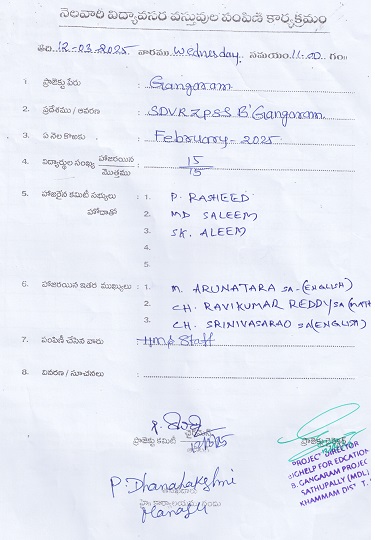 నెలవారి విద్యావసర వస్తువుల పంపిణి కార్యక్రమం
తేది. 12-03-2025 వారము Wednesday. సమయం. 11-00. గం॥
1. ప్రాజెక్టు పేరు : Gangaram
2. ప్రదేశము / ఆవరణ : SDVRZPSS B'Gangaram
3. ఏ నెల కొరకు : February-2025
4. విద్యార్థుల సంఖ్య హాజరయిన : 15
మొత్తము 15
5. హాజరైన కమిటీ సభ్యులు : 1. P. RASHEED
హోదాతో 2. MD SALEEM
3. SK. ALEEM
4.
5.
6. హాజరయిన ఇతర ముఖ్యులు : 1. M. ARUNATARA SA-(ENGLISH)
2. CH. RAVIKUMAR REDDY SA (MATH
3. CH. SRINIVASARAO SA(ENGLISH)
7. పంపిణీ చేసిన వారు : HM & Staff
8. వివరణ / సూచనలు :
ప్రాజెక్టు కమిటీ ఛైర్మన్
ప్రాజెక్టు డైరెక్టర్
PROJECT DIRECTOR
BIGHELP FOR EDCATION
B. GANGARAM PROJEC
SATHUPALLY (MDL)
KHAMMAM DIST. T.
P. Dhanalakshmi